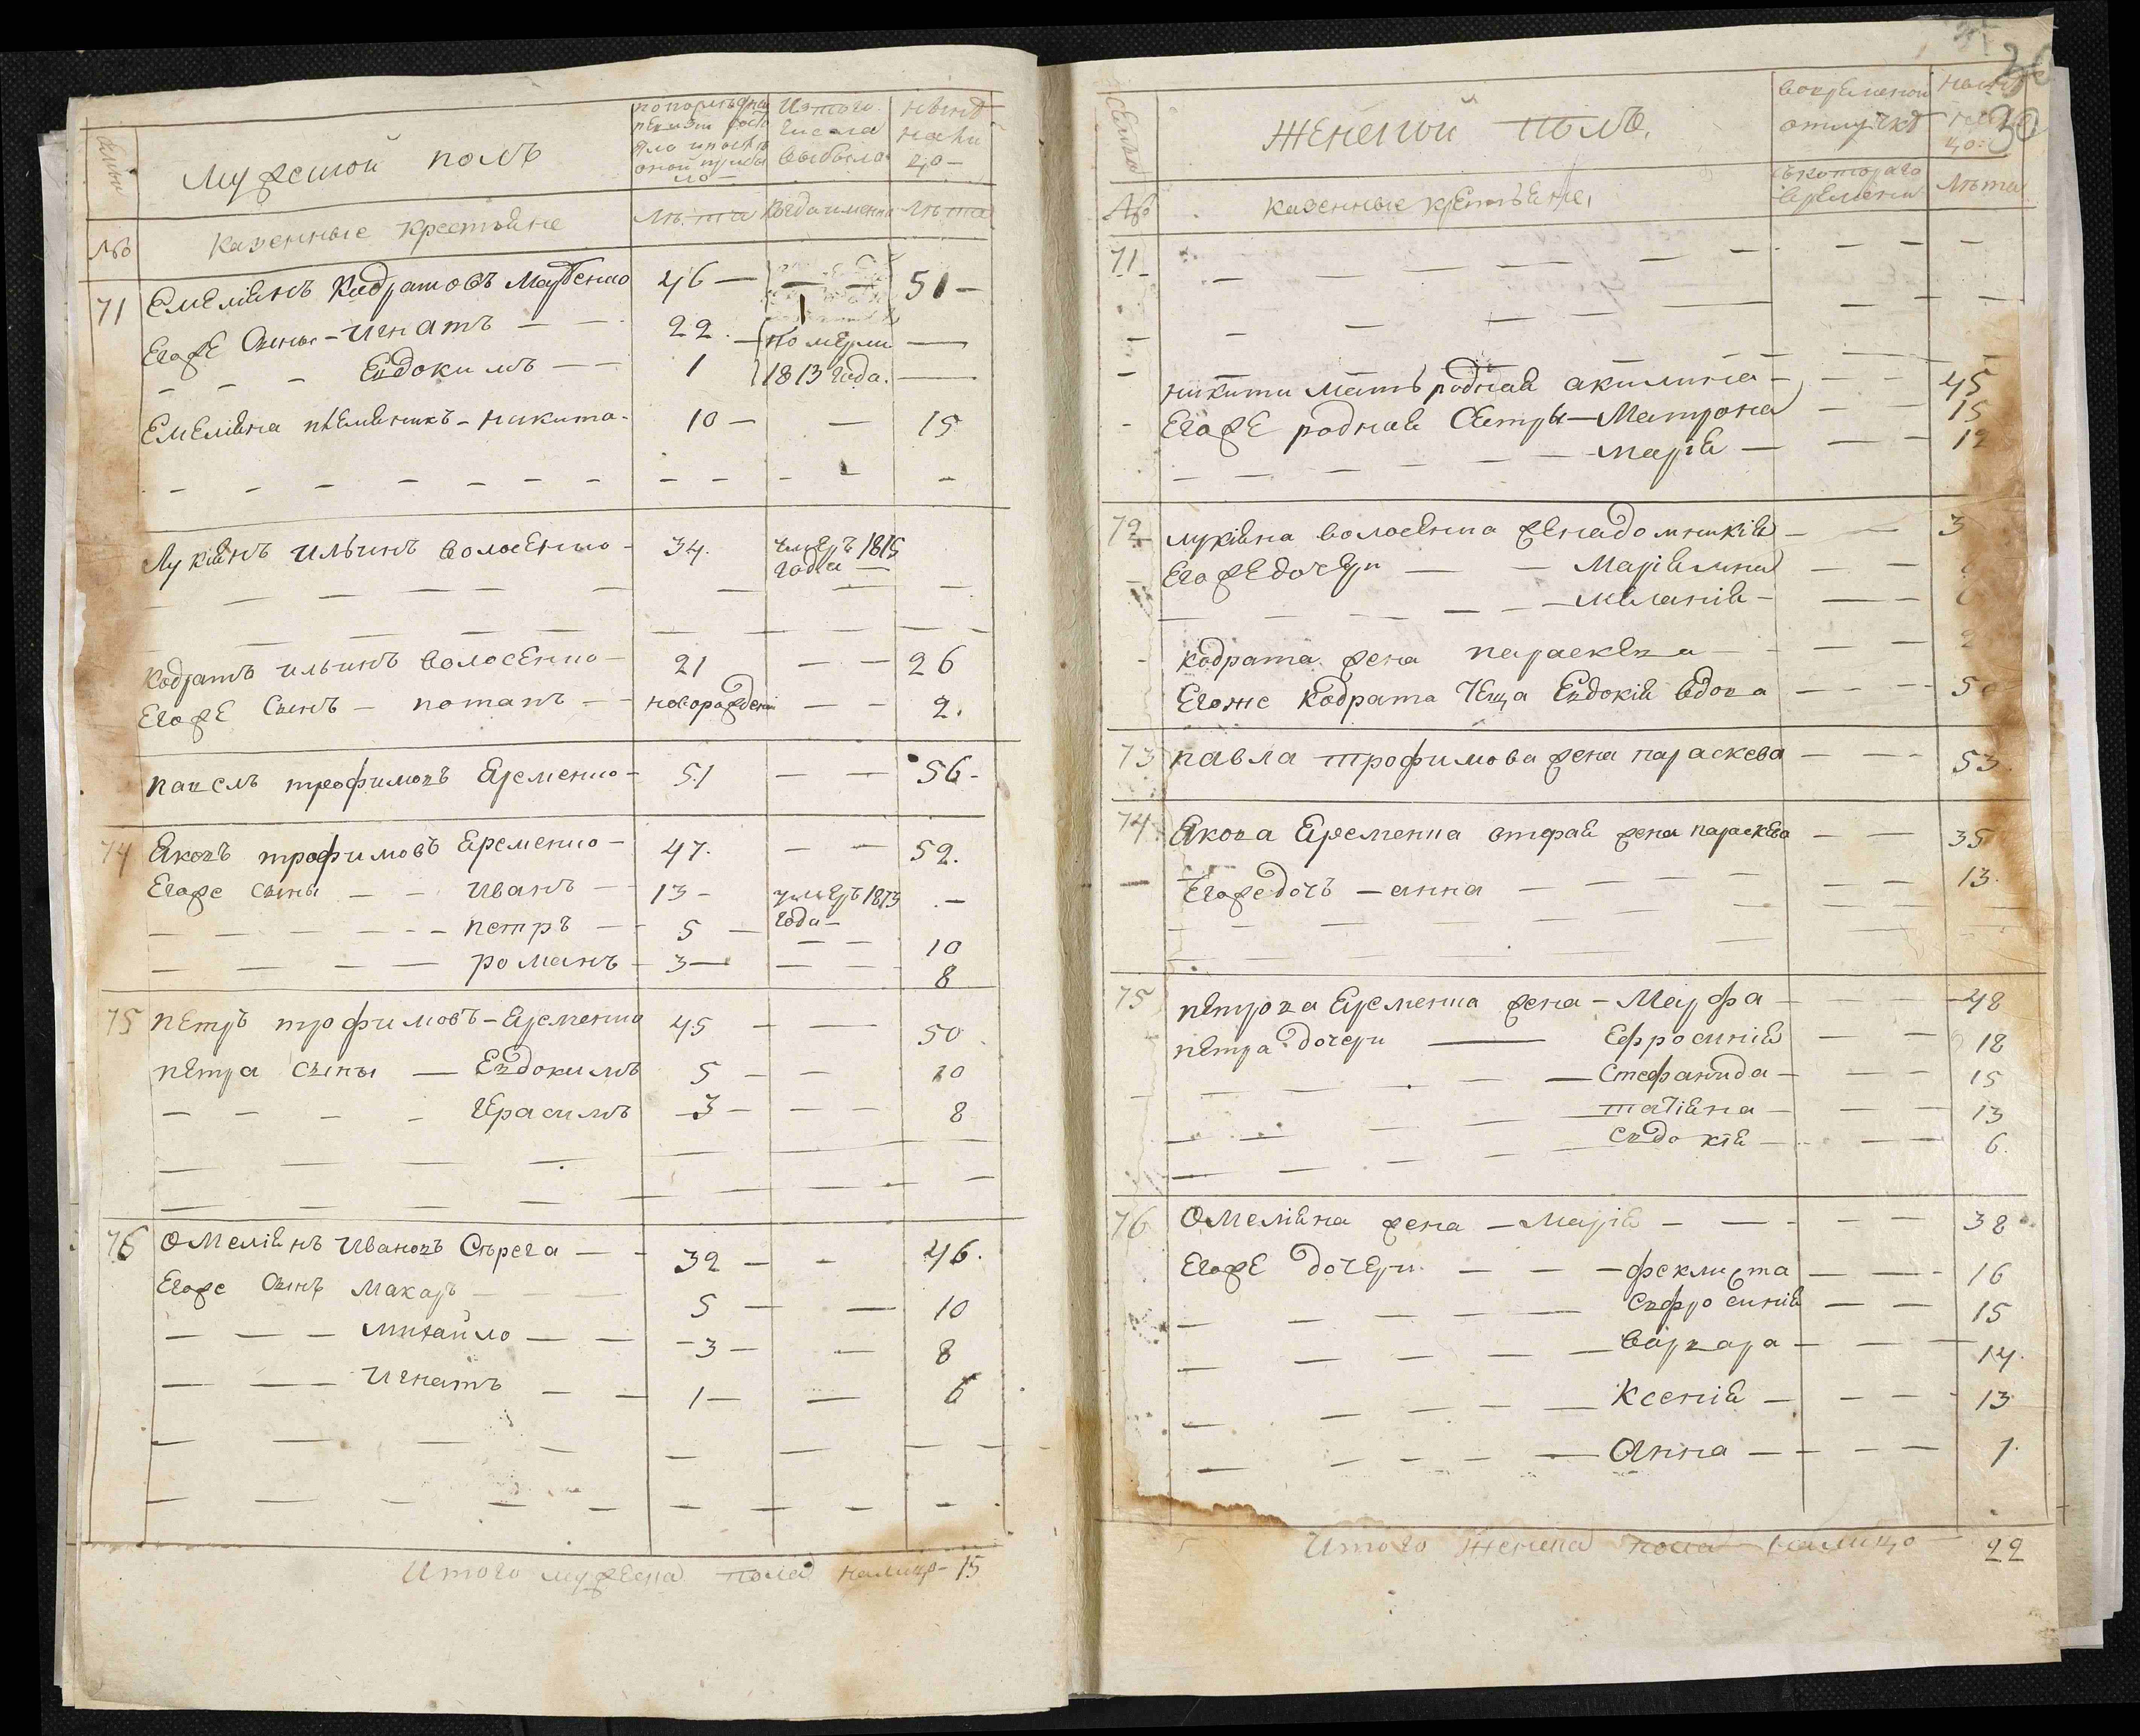 Семьи
Мужеской полъ
по последней
ревизіи состо
яло и после
оной прибы
ло
Изтого
числа
выбыло
Ныне
нали
цо
№
Казенные крестьяне
Лѣта
Когда именно
Лѣта
71 Емеліянъ Кодратовъ 46 — — 51
Егоже Сыны – Игнатъ — 22 Померли —
Евдокимъ — 1 1813 года. —
Емеліяна племяникъ – Никита – 10 — — 15
Лукіянъ Ильинъ Волосенко – 34. умеръ 1815
года —
Кодратъ Ильинъ Волосенко – 21 — — 26
Егоже Сынъ – Потапъ — новорожденъ — — 2.
Павелъ Трофимовъ Яременко – 51 — — 56
74 Яковъ Трофимовъ Яременко – 47. — — 52.
Егоже сыны — Иванъ — 13 – умеръ 1813 —
года –
Петръ — 5 — — 10
Романъ – 3 — — 8
75 Петръ Трофимовъ – Яременко 45 — — 50
Петра Сыны — Евдокимъ 5 — — 10
Герасимъ 3 — — 8
76 Омеліянъ Ивановъ Сѣрега — 32 — — 46.
Егоже Сынъ Макаръ — 5 — — 10
Михайло — 3 — — 8
Игнатъ — 1 — — 6
Итого мужеска пола налицо – 15
30
Семьи
Женской полъ.
Вовременной
отлучке
Ныне
нали
цо
№
Казенные крестьяне,
Съкотораго
времени
Лѣта
71
Никити мать родная Акилина – 45
Егоже родная Сестры – Матрона 15
Марія — 12
72 Лукіяна Волосенка жена Домникія — 3
Егоже дочери — Маріямна —
Меланія —
Кодрата жена Параскева — 2
Егоже Кодрата Теща Евдокія вдова — 50
73 Павла Трофимова жена Параскева — 53.
74 Якова Яременка вторая жена Параскева — 35
Егоже дочь – Анна — 13.
75 Петрова Яременка жена – Марфа — 48
Петра дочери — Ефросинія — 18
Стефанида — 15
Татіяна — 13
Евдокія — 6.
76 Омеліяна жена – Марія — 38
Егоже дочери — Феклиста — 16
Евфросинія — 15
Варвара — 14.
Ксенія — 13
Анна — 1.
Итого Женска пола налицо 22